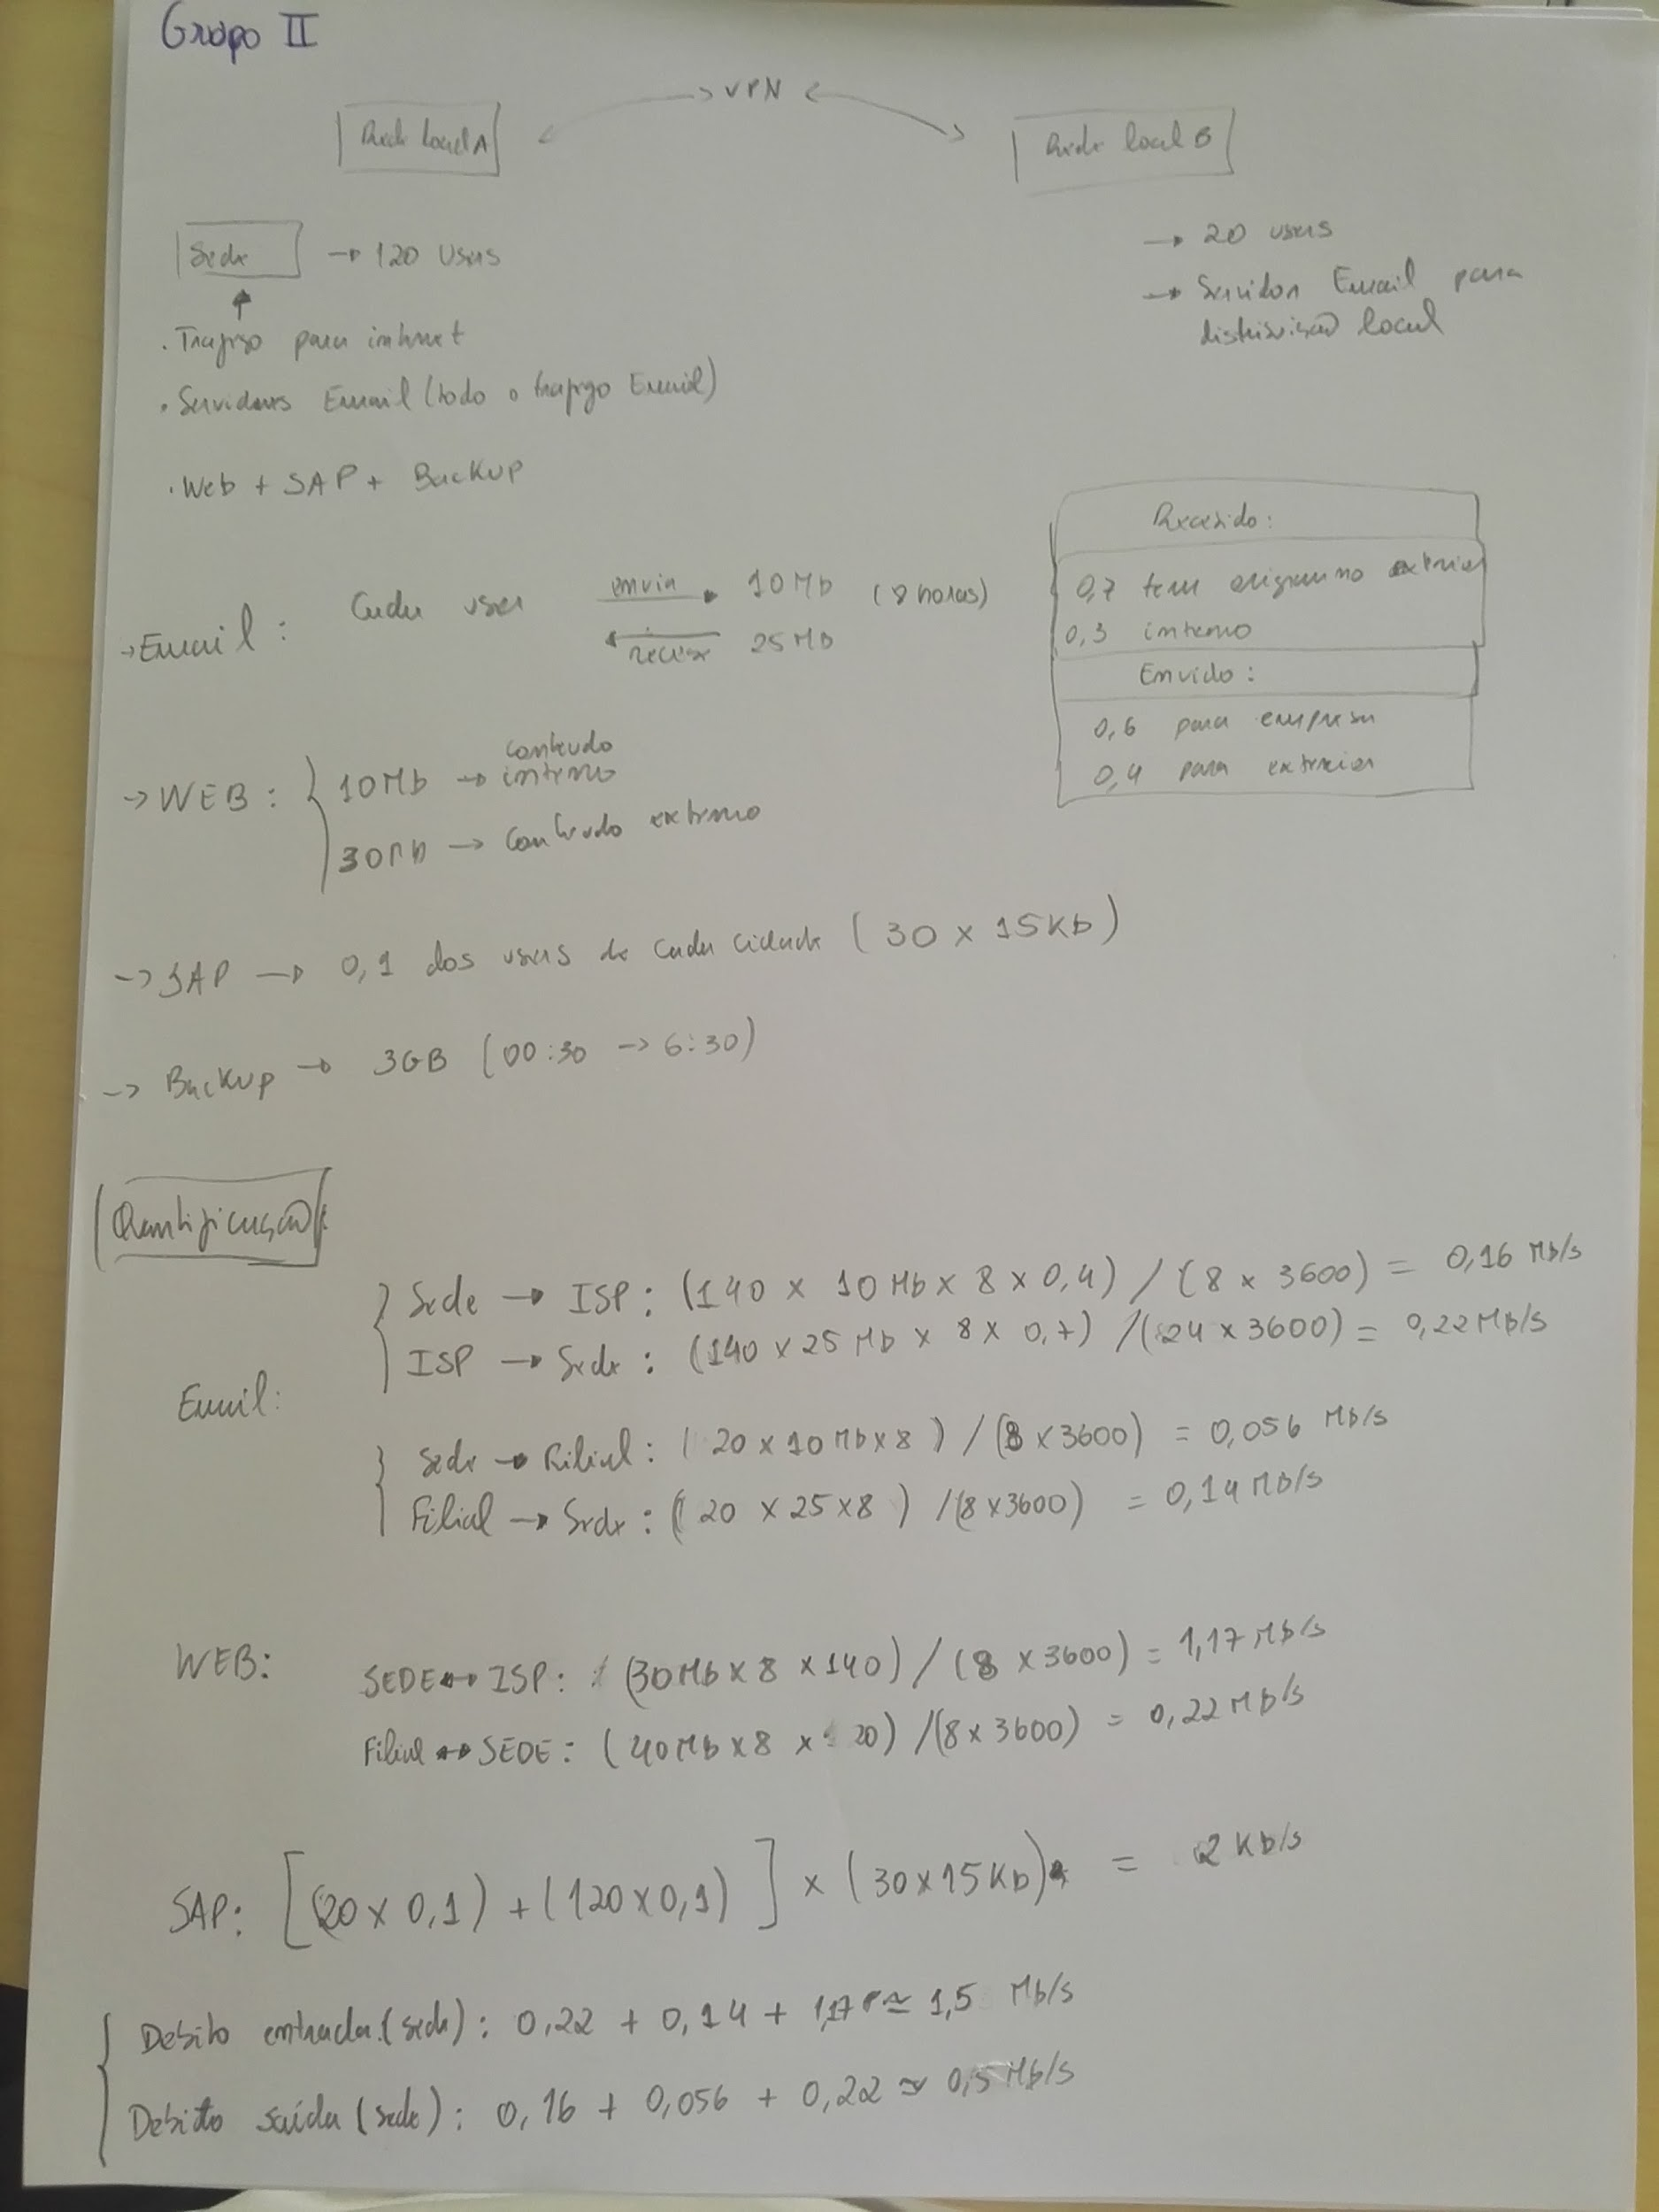 Grupo II
→ VPN ←
Rede local A
Rede local B
Sede → 120 users
→ 20 users
→ Servidor Email para
distribuição local
. Trafego para internet
. Servidores Email (todo o trafego Email)
. Web + SAP + Backup
Recebido:
0,7 tem origem no exterior
0,3 interno
Enviado:
0,6 para empresa
0,4 para exterior
→ Email: Cada user envia 10 Mb (8 horas)
recebe 25 Mb
→ WEB: { 10Mb → conteudo interno
30Mb → conteudo externo
→ SAP → 0,1 dos users de cada cidade (30 x 15Kb)
→ Backup → 3GB (00:30 → 6:30)
Quantificação:
Email:
Sede → ISP: (140 x 10 Mb x 8 x 0,4) / (8 x 3600) = 0,16 Mb/s
ISP → Sede: (140 x 25 Mb x 8 x 0,7) / (24 x 3600) = 0,22 Mb/s
Sede → Filial: (20 x 10 Mb x 8) / (8 x 3600) = 0,056 Mb/s
Filial → Sede: (20 x 25 x 8) / (8 x 3600) = 0,14 Mb/s
WEB: SEDE ↔ ISP: (30 Mb x 8 x 140) / (8 x 3600) = 1,17 Mb/s
Filial ↔ SEDE: (40 Mb x 8 x 20) / (8 x 3600) = 0,22 Mb/s
SAP: [(20 x 0,1) + (120 x 0,1)] x (30 x 15 Kb) = 2 Kb/s
Debito entrada (sede): 0,22 + 0,14 + 1,17 ≃ 1,5 Mb/s
Debito saída (sede): 0,16 + 0,056 + 0,22 ≃ 0,5 Mb/s